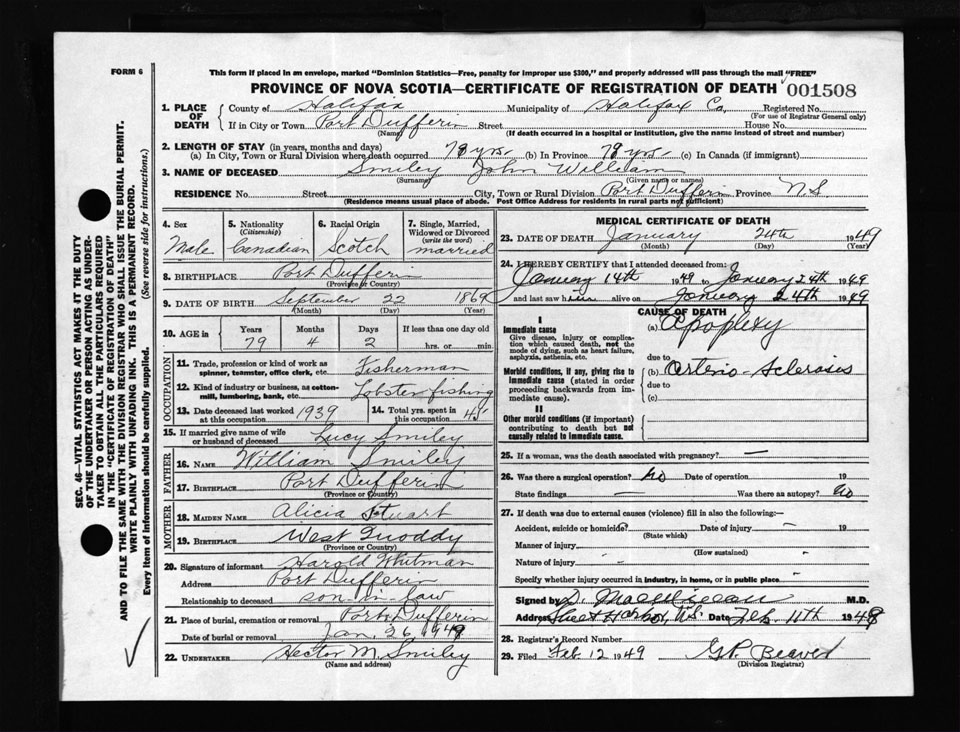 FORM 6
This form if placed in an envelope, marked "Dominion Statistics—Free, penalty for improper use $300," and properly addressed will pass through the mail "FREE"
PROVINCE OF NOVA SCOTIA—CERTIFICATE OF REGISTRATION OF DEATH 001508
1. PLACE OF DEATH
County of Halifax Municipality of Halifax Co. Registered No.
(For use of Registrar General only)
If in City or Town Port Dufferin Street House No.
(Name) (If death occurred in a hospital or institution, give the name instead of street and number)
2. LENGTH OF STAY (in years, months and days)
(a) In City, Town or Rural Division where death occurred 79 yrs. (b) In Province 79 yrs. (c) In Canada (if immigrant)
3. NAME OF DECEASED Smiley John William
(Surname) (Given name or names)
RESIDENCE No. Street City, Town or Rural Division Port Dufferin Province N.S
(Residence means usual place of abode. Post Office Address for residents in rural parts not sufficient)
4. Sex
Male
5. Nationality
(Citizenship)
Canadian
6. Racial Origin
Scotch
7. Single, Married, Widowed or Divorced
(write the word)
married
8. BIRTHPLACE Port Dufferin
(Province or Country)
9. DATE OF BIRTH September 22 1869
(Month) (Day) (Year)
10. AGE in
Years Months Days If less than one day old
79 4 2 hrs. or min.
OCCUPATION
11. Trade, profession or kind of work as spinner, teamster, office clerk, etc. Fisherman
12. Kind of industry or business, as cotton-mill, lumbering, bank, etc. Lobster fishing
13. Date deceased last worked at this occupation 1939
14. Total yrs. spent in this occupation 45
15. If married give name of wife or husband of deceased Lucy Smiley
FATHER
16. NAME William Smiley
17. BIRTHPLACE Port Dufferin
(Province or Country)
MOTHER
18. MAIDEN NAME Alicia Stuart
19. BIRTHPLACE West Quoddy
(Province or Country)
20. Signature of informant Harold Whitman
Address Port Dufferin
Relationship to deceased son-in-law
21. Place of burial, cremation or removal Port Dufferin
Date of burial or removal Jan. 26 1949
22. UNDERTAKER Hector M. Smiley
(Name and address)
MEDICAL CERTIFICATE OF DEATH
23. DATE OF DEATH January 24th 1949
(Month) (Day) (Year)
24. I HEREBY CERTIFY that I attended deceased from:
January 14th 1949 to January 24th 1949
and last saw him alive on January 24th 1949
CAUSE OF DEATH
I
Immediate cause
Give disease, injury or complication which caused death, not the mode of dying, such as heart failure, asphyxia, asthenia, etc.
(a) Apoplexy
due to
Morbid conditions, if any, giving rise to immediate cause (stated in order proceeding backwards from immediate cause).
(b) Arterio-Sclerosis
due to
(c)
II
Other morbid conditions (if important) contributing to death but not causally related to immediate cause.
25. If a woman, was the death associated with pregnancy? —
26. Was there a surgical operation? no Date of operation 19
State findings — Was there an autopsy? no
27. If death was due to external causes (violence) fill in also the following:—
Accident, suicide or homicide? Date of injury - 19
(State which)
Manner of injury
(How sustained)
Nature of injury -
Specify whether injury occurred in industry, in home, or in public place -
Signed by D. M.D.
Address Sheet Harbor, N.S. Date Feb. 11th 1948
28. Registrar's Record Number
29. Filed Feb. 12 1949 G.P. Beaver
(Division Registrar)
SEC. 46—VITAL STATISTICS ACT MAKES IT THE DUTY
OF THE UNDERTAKER OR PERSON ACTING AS UNDER-
TAKER TO OBTAIN ALL THE PARTICULARS REQUIRED
IN THE "CERTIFICATE OF REGISTRATION OF DEATH"
AND TO FILE THE SAME WITH THE DIVISION REGISTRAR WHO SHALL ISSUE THE BURIAL PERMIT.
WRITE PLAINLY WITH UNFADING INK. THIS IS A PERMANENT RECORD.
Every item of information should be carefully supplied. (See reverse side for instructions.)